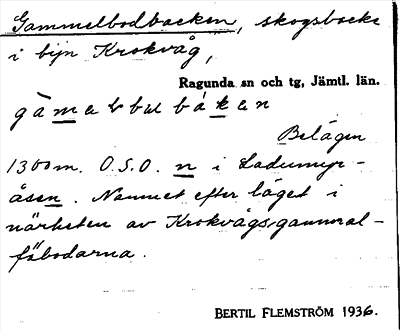 Gammelbodbacken, skogsbacke
i byn Krokvåg,
Ragunda sn och tg, Jämtl. län.
Belägen
1300 m. O.S.O. n i Ladumyr-
åsen. Namnet efter läget i
närheten av Krokvågs gammal-
fäbodarna.
BERTIL FLEMSTRÖM 1936.